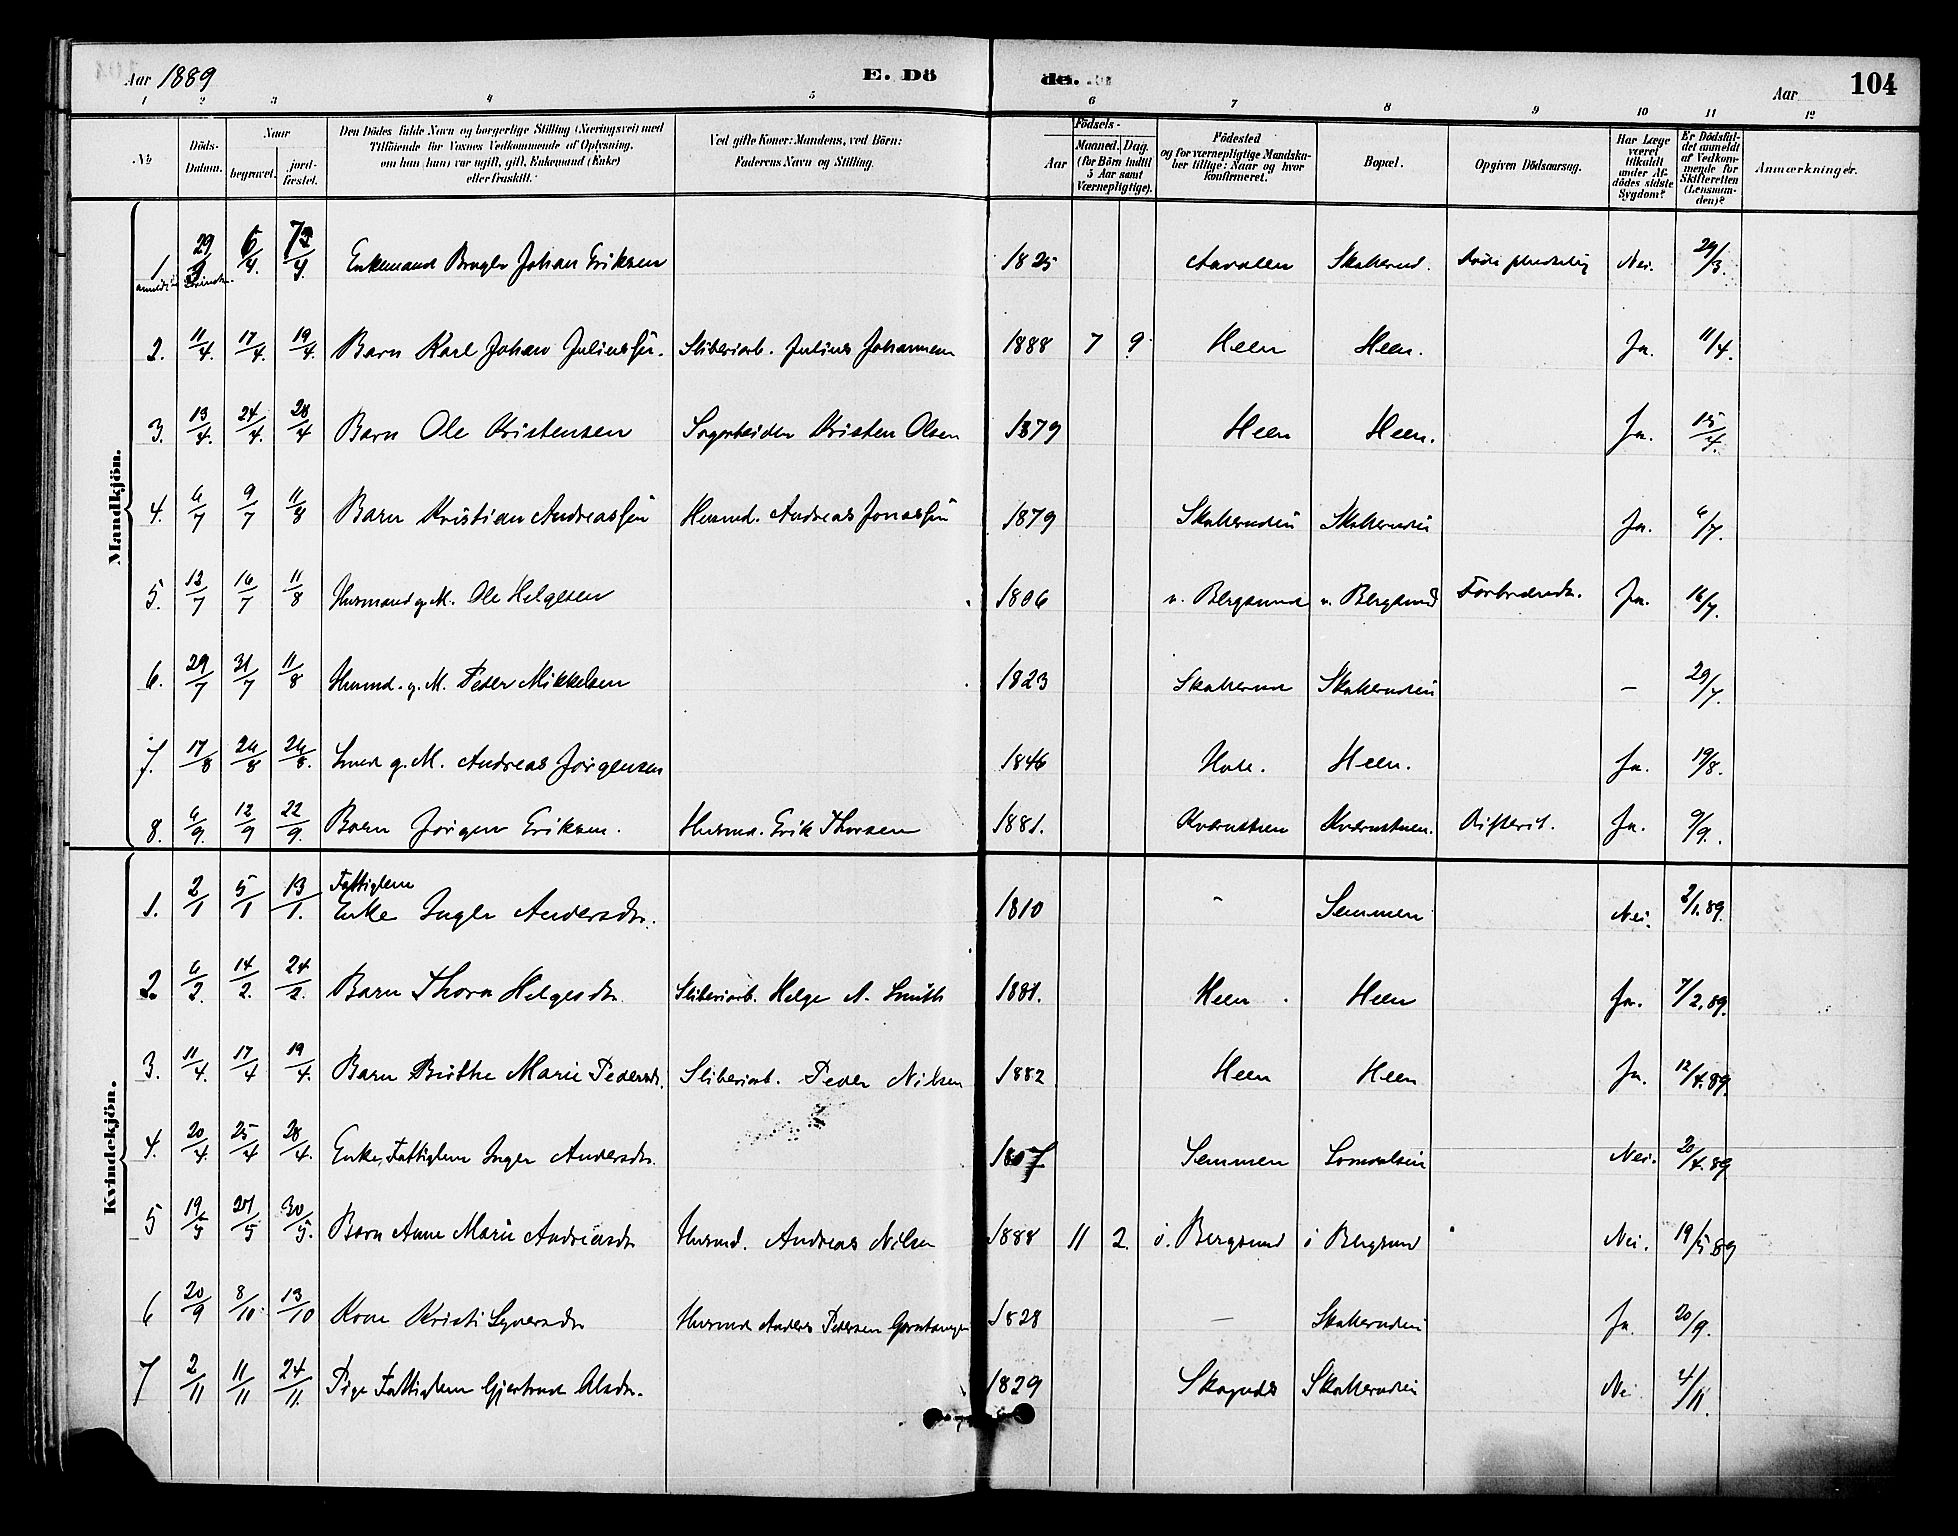 Aar 1889
E. Dö
de.
Aar
104
1 2 3 4 5 6 7 8 9 10 11 12
No
Döds-Datum.
Naar begravet. jordfæstet.
Den Dödes fulde Navn og borgerlige Stilling (Næringsvei) med Tilföiende for Voxnes Vedkommende af Oplysning, om han (hun) var ugift, gift, Enkemand (Enke) eller fraskilt.
Ved gifte Koner: Mandens, ved Börn: Faderens Navn og Stilling.
Födsels- Aar Maaned. Dag. (for Börn indtil 5 Aar samt Værnepligtige).
Födested og for værnepligtige Mandskaber tillige: Naar og hvor konfirmeret.
Bopæl.
Opgiven Dödsaarsag.
Har Læge været tilkaldt under Afdödes sidste Sygdom?
Er Dödsfaldet anmeldt af Vedkommende for Skifteretten (Lensmanden)?
Anmærkninger.
Mandkjön.
1 29/3 6/4. 7/4 Enkemand Johan Eriksen 1825 Skollerud. Nei. 29/3.
2. 11/4. 17/4. 19/4. Barn Karl Johan Juliussen. Sliberiarb. Julius Johannesen 1888 7 9 Heen Heen. Ja. 11/4.
3. 13/4. 24/4. 28/4 Barn Ole Kristensen Sagarbeider Kristen Olsen 1879 Heen Heen. Ja. 15/4.
4. 6/7 9/7 11/8 Barn Kristian Andreassen Husmd. Andreas Jonassen 1879 Ja. 6/7.
5. 12/7 16/7 11/8 Husmand g. M. Ole Helgesen 1806 v. Bergsund v. Bergsund Ja. 16/7.
6. 29/7 31/7 11/8 Husmd. g. M. Peder Mikkelsen 1823 – 29/7.
7. 17/8 24/8 24/8. Smed g. M. Andreas Jörgensen 1846 Hole. Heen. Ja. 19/8.
8. 6/9. 12/9 22/9. Barn Jörgen Eriksen. Husmd. Erik Thorsen 1881. Difterit. Ja. 9/9.
Kvindekjön.
1. 2/1 5/1 13/1. Fattiglem Enke Inger Andersdtr. 1810 - Semmen Nei. 2/1. 89.
2. 6/2. 14/2. 24/2. Barn Thora Helgesdtr. Sliberiarb. Helge A. Smith 1881. Heen Heen Ja. 7/2. 89.
3. 11/4. 17/4 19/4. Barn Birthe Marie Pedersdtr. Sliberiarb. Peder Nilsen 1882 Heen Heen Ja. 12/4. 89.
4. 20/4. 25/4 28/4. Enke, Fattiglem Inger Andersdtr. 1807 Semmen Nei. 20/4. 89
5 19/5 27/5 30/5. Barn Anne Marie Andreasdtr Husmd. Andreas Nilsen 1888 11 2. ö. Bergsund ö Bergsund Nei. 19/5 89
6 20/9 8/10. 13/10 Kone Kristi Syversdtr Husmd Anders Pedersen 1828 – Ja. 20/9.
7 2/11 11/11 24/11. Pige Fattiglem Gjertrud Olsdtr. 1829 Nei 4/11.